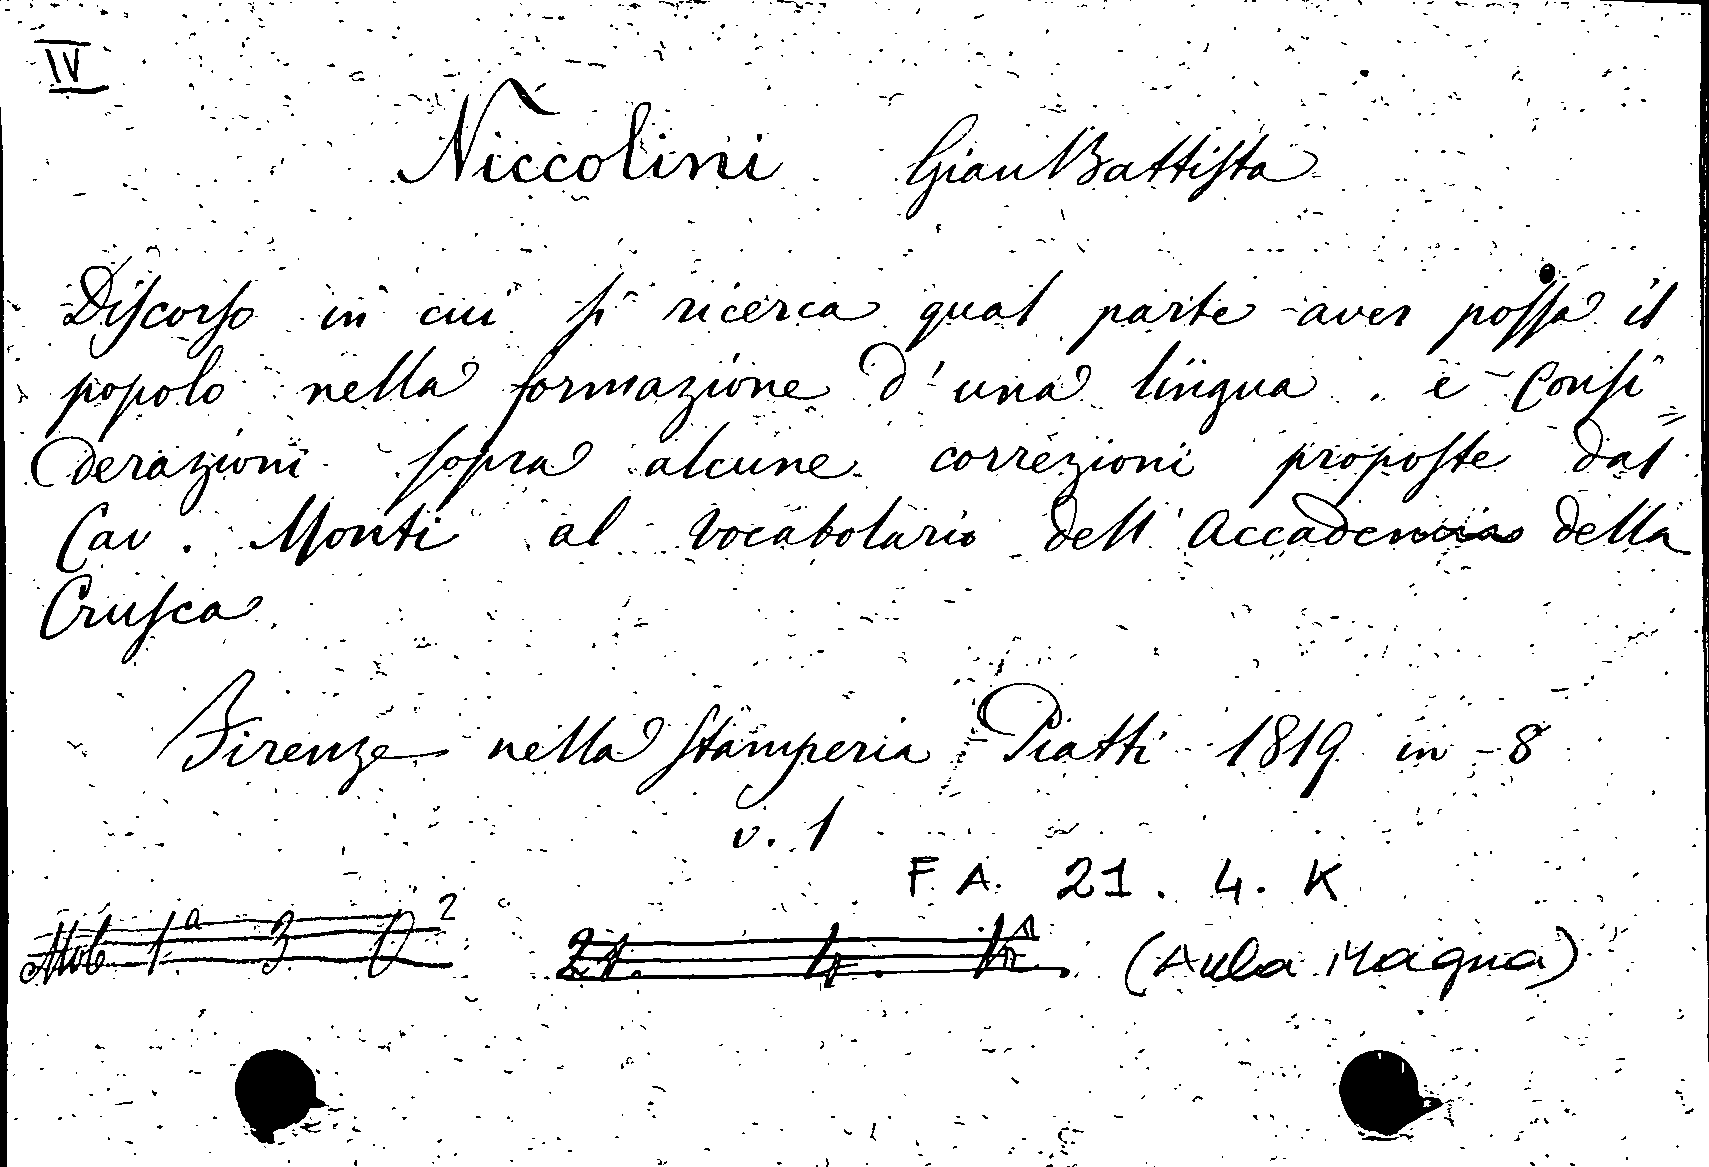 IV
Niccolini Gian Battista
Discorso in cui si ricerca qual parte aver possa il
popolo nella formazione d'una lingua . e Consi=
derazioni sopra alcune correzioni proposte dal
Cav. Monti al Vocabolario dell'Accademia della
Crusca.
Firenze nella Stamperia Piatti 1819 in-8
v. 1
F. A. 21. 4. K
Mob 1a 3 0 2 21. 4. K (Aula Magna)